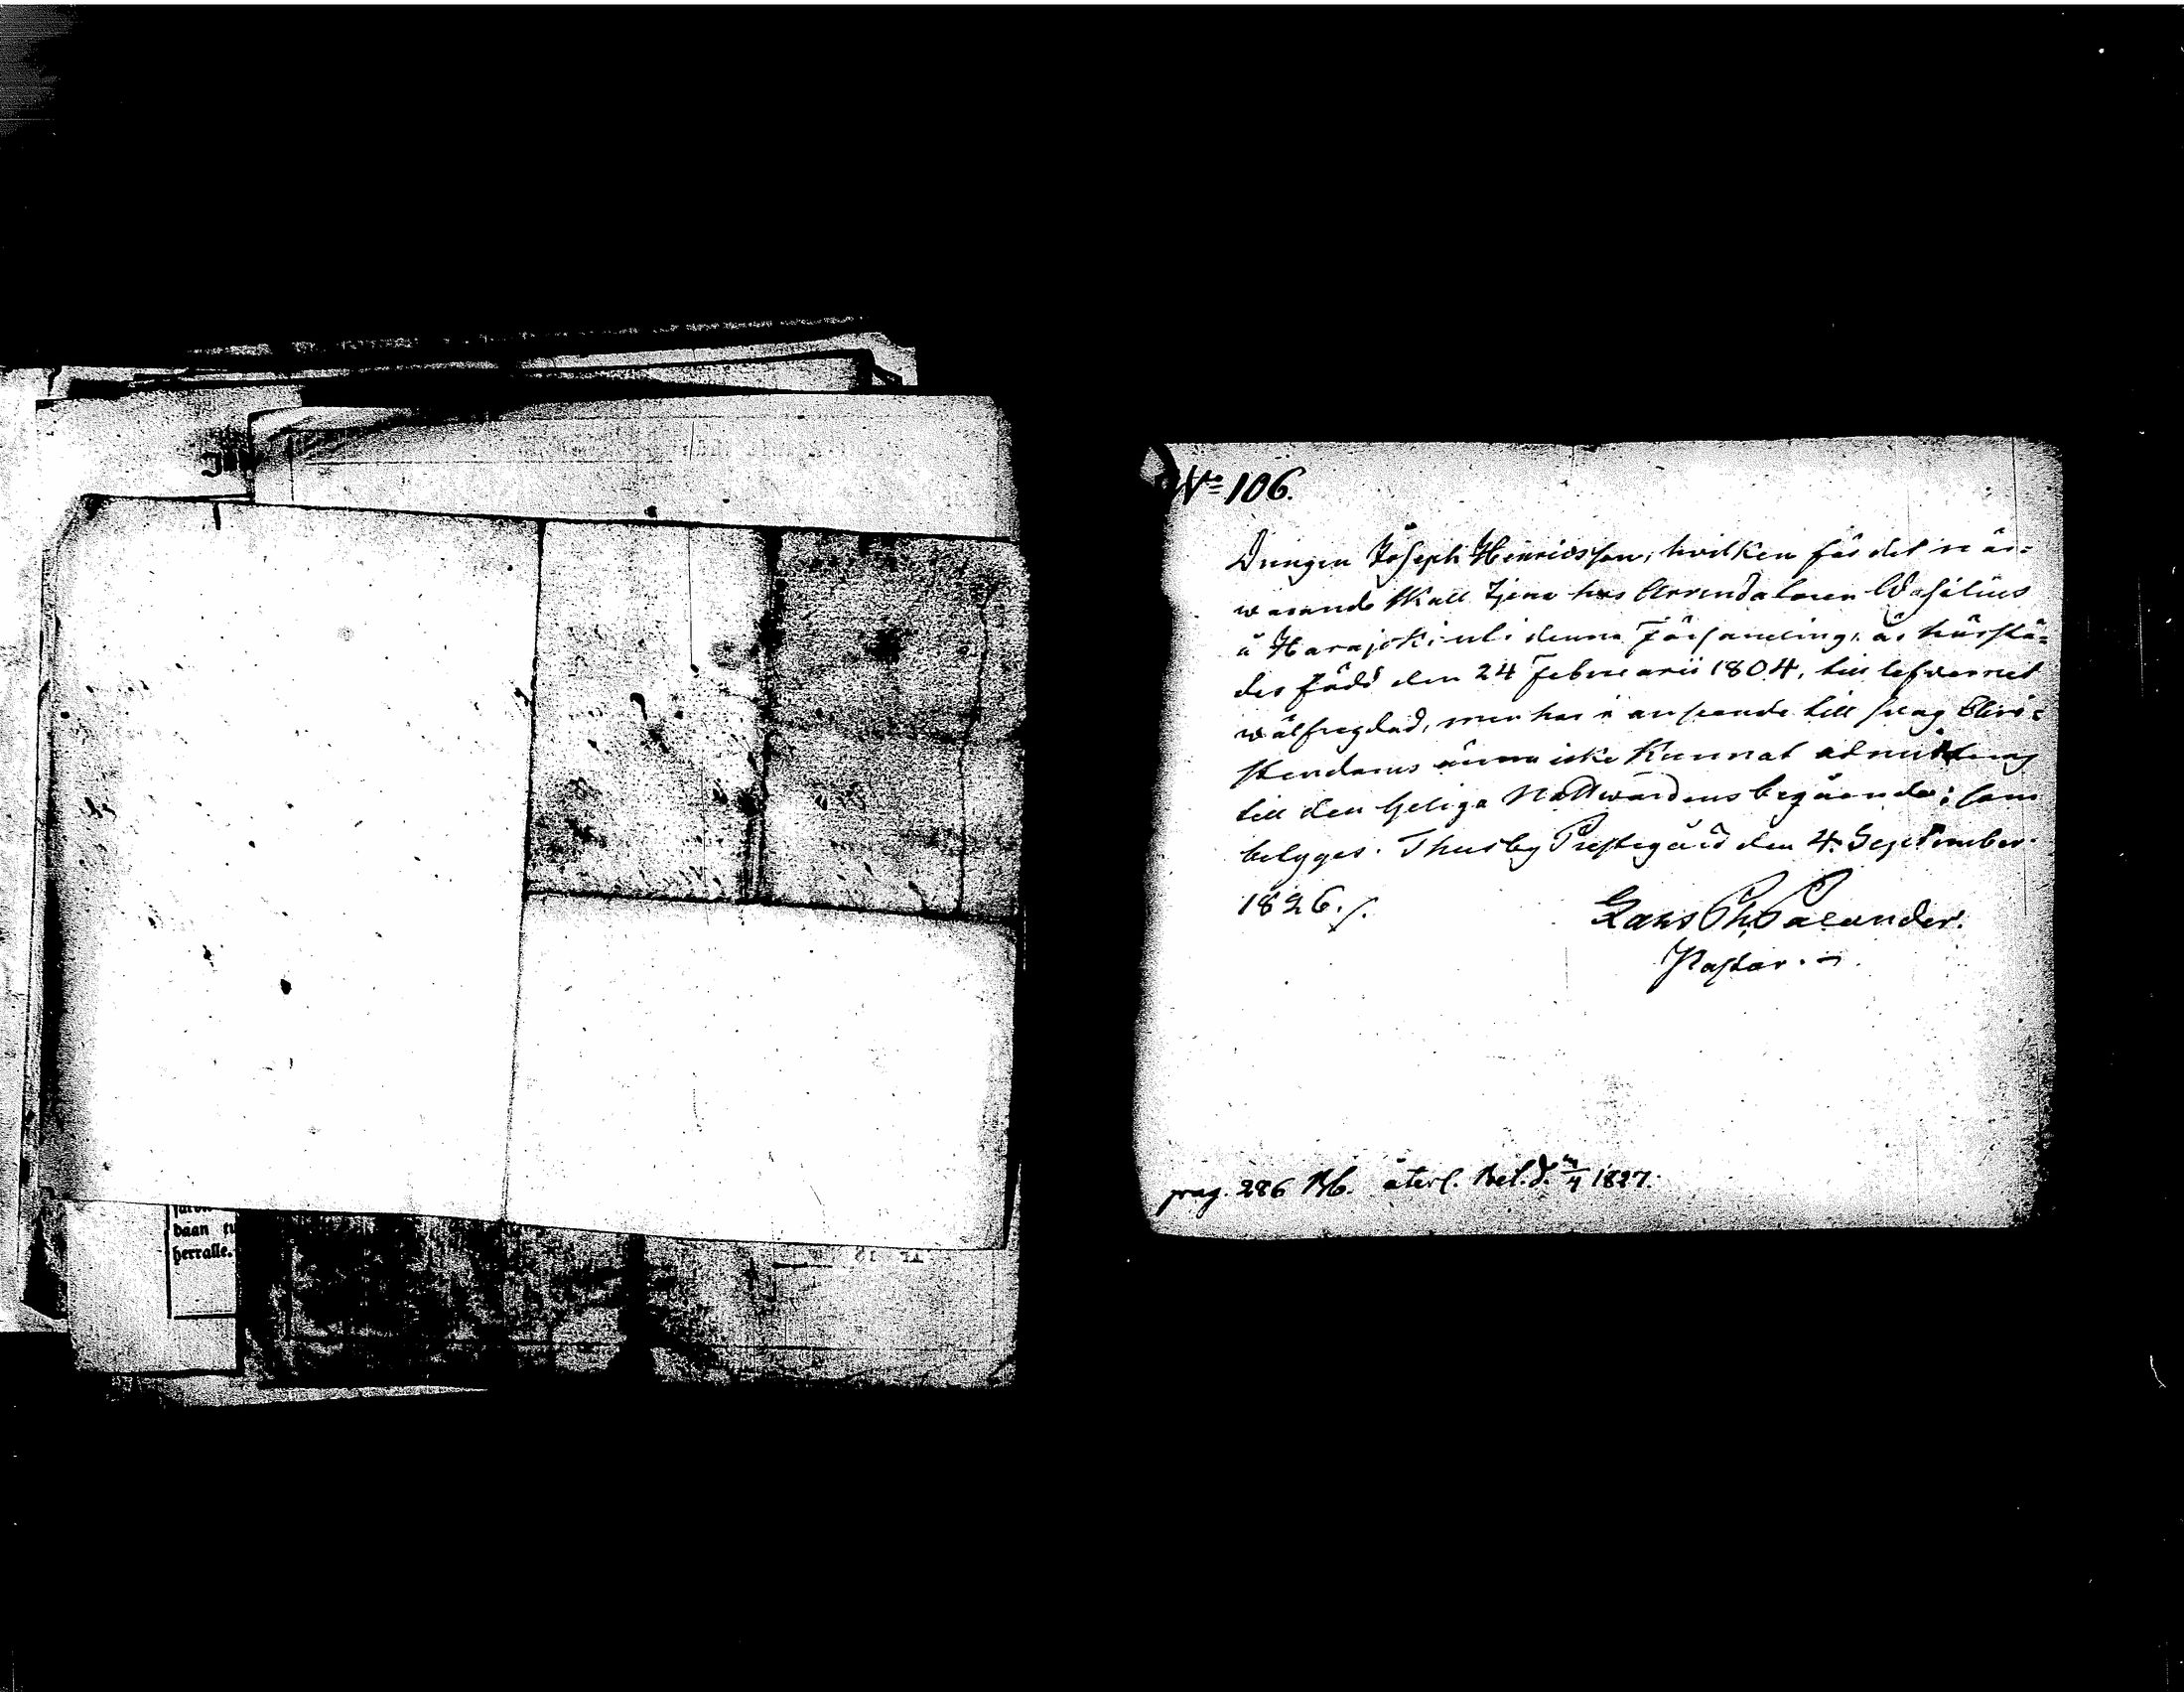 No 106.
Drengen Joseph Henricsson, hvilken för det när=
warande skall tjena hos Arrendatoren Wasilius
å Harajoki uti denna Församling, är härstä=
des född den 24 Februarii 1804, till lefwernet
wälfregdad, men har i anseende till swag Chri=
stendoms ännu icke kunnat admitteras
till den heliga Nattwardens begående; som
betygas. Thusby Prestegård den 4. September
1826./.
Lars Ph. Palander.
Pastor.
pag. 286 återl. Bet. d. /4 1827.
daan tu
herralle.